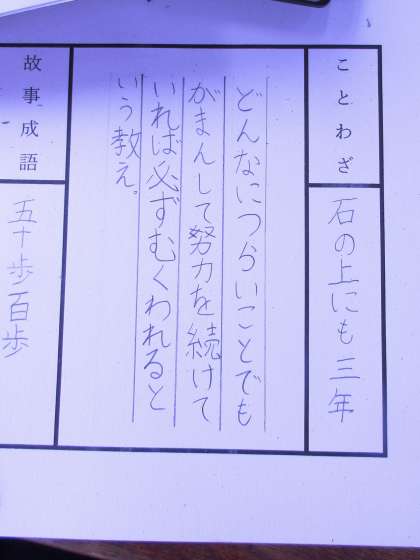 ことわざ
石の上にも三年
どんなにつらいことでも
がまんして努力を続けて
いれば必ずむくわれると
いう教え。
故事成語
五十歩百歩